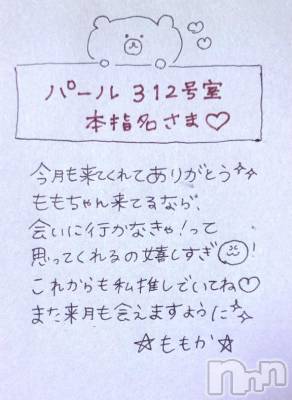 パール 312号室
本指名さま♡
今月も来てくれてありがとう✨
ももちゃん来てるなら、
会いに行かなきゃ！って
思ってくれるの嬉しすぎ！
これからも私推しでいてね♡
また来月も会えますように✨
☆ももか☆